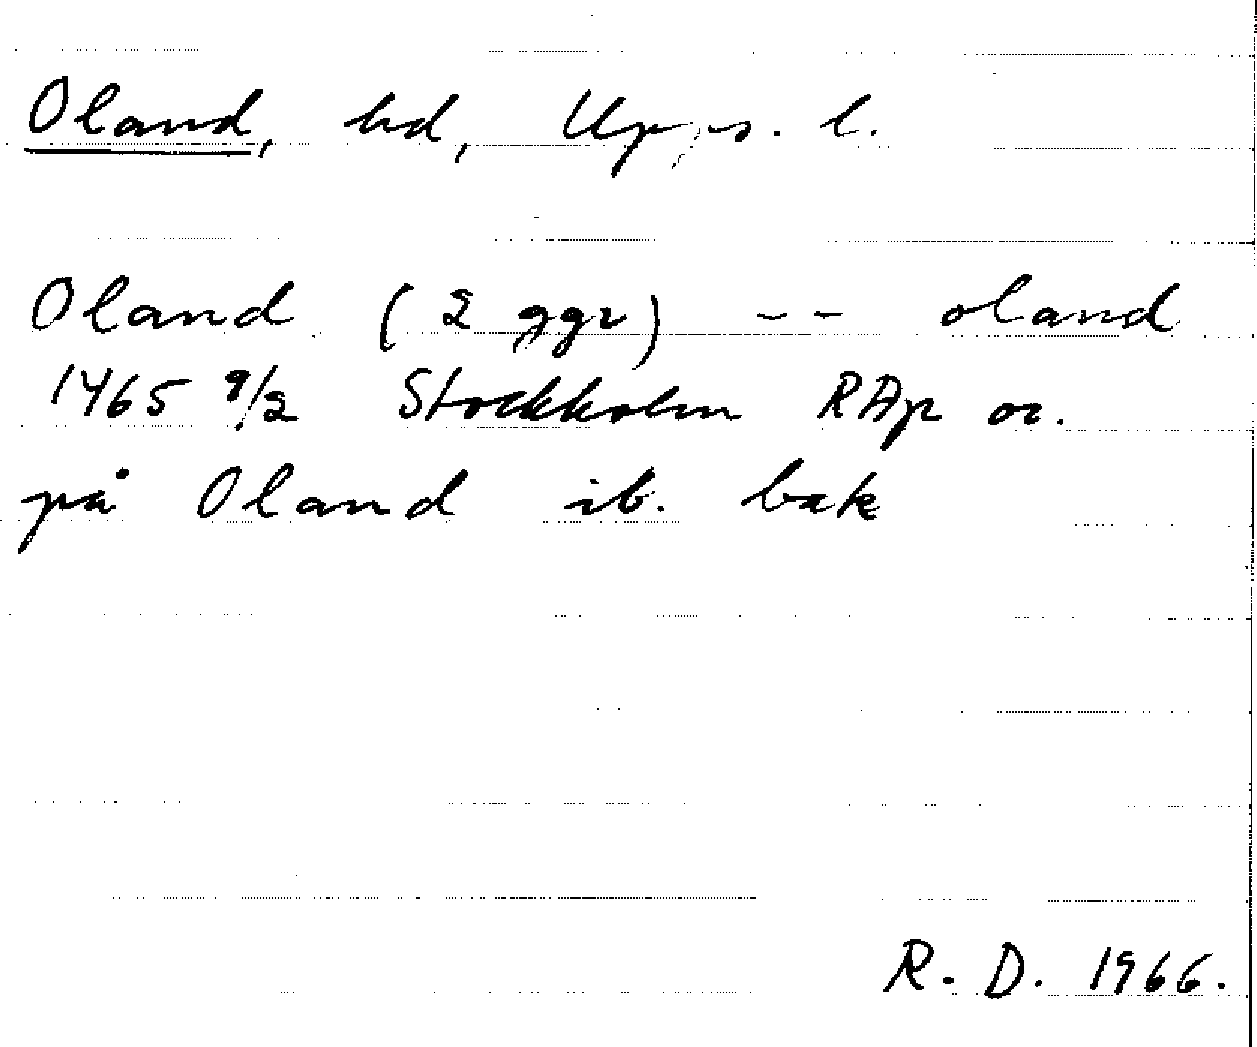 Oland, hd, Upps. l.
Oland (2 ggr) -- oland
1465 9/2 Stockholm RAp or.
på Oland ib. bak
R. D. 1966.